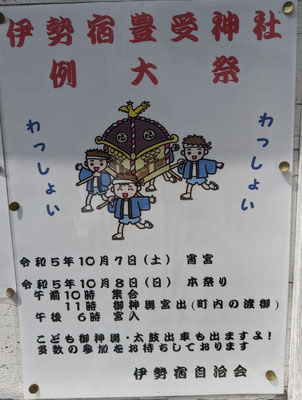 伊勢宿豊受神社
例大祭
わっしょい
わっしょい
令和5年10月7日（土） 宵宮
令和5年10月8日（日） 本祭り
午前10時 集合
11時 御神輿宮出（町内の渡御）
午後 6時 宮入
こども御神輿・太鼓出車も出ますよ！
多数の参加をお待ちしております
伊勢宿自治会